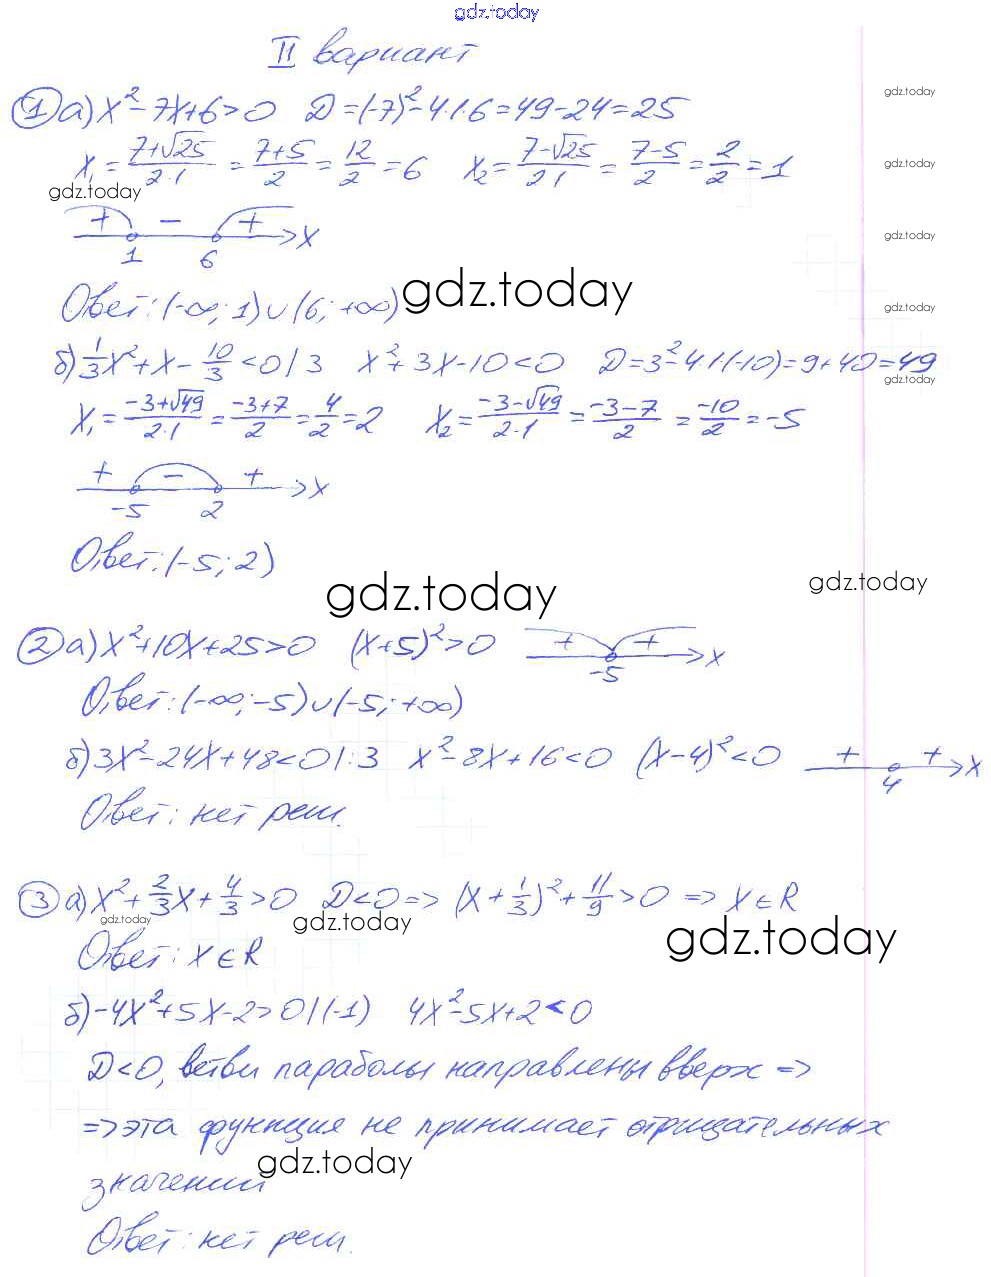 gdz.today
II вариант
① а) x² - 7x + 6 > 0 D = (-7)² - 4·1·6 = 49 - 24 = 25
gdz.today
x₁ = (7+√25)/(2·1) = (7+5)/2 = 12/2 = 6 x₂ = (7-√25)/(2·1) = (7-5)/2 = 2/2 = 1
gdz.today
gdz.today
+ - + x
gdz.today
1 6
Ответ: (-∞; 1) ∪ (6; +∞)
gdz.today
gdz.today
б) 1/3 x² + x - 10/3 < 0 | 3 x² + 3x - 10 < 0 D = 3² - 4·1·(-10) = 9 + 40 = 49
gdz.today
x₁ = (-3+√49)/(2·1) = (-3+7)/2 = 4/2 = 2 x₂ = (-3-√49)/(2·1) = (-3-7)/2 = -10/2 = -5
+ - + x
-5 2
Ответ: (-5; 2)
gdz.today
gdz.today
② а) x² + 10x + 25 > 0 (x+5)² > 0 + + x
-5
Ответ: (-∞; -5) ∪ (-5; +∞)
б) 3x² - 24x + 48 < 0 | :3 x² - 8x + 16 < 0 (x-4)² < 0 + + x
4
Ответ: нет реш.
③ а) x² + 2/3 x + 4/3 > 0 D < 0 => (x + 1/3)² + 11/9 > 0 => x ∈ R
gdz.today
gdz.today
gdz.today
Ответ: x ∈ R
б) -4x² + 5x - 2 > 0 | (-1) 4x² - 5x + 2 < 0
D < 0, ветви параболы направлены вверх =>
=> эта функция не принимает отрицательных
gdz.today
значений
Ответ: нет реш.